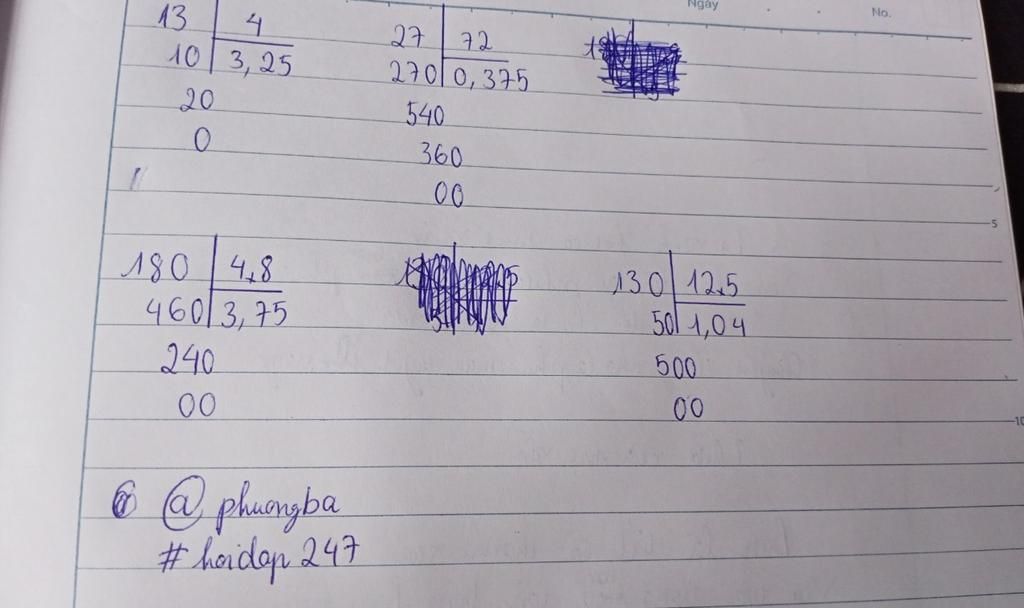 Ngày
No.
13 4
10 3,25
20
0
27 72
270 0,375
540
360
00
5
180 4,8
460 3,75
240
00
130 12,5
50 1,04
500
00
10
@ phuongba
# hoidap 247